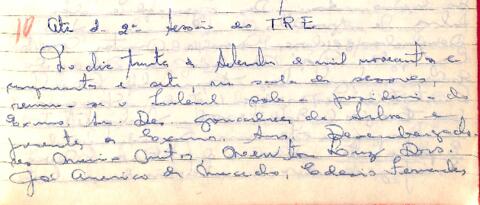 10 Ata da 2ª sessão do TRE
No dia trinta de Setembro de mil novecentos e
cinquenta e sete, na sala de sessões,
reuniu-se o Tribunal sob a presidencia do
Exmo. Sr. Des. Gonçalves da Silva e
presentes os Exmos. Srs. Desembargado-
res
José Americo de Macedo, Fernandes